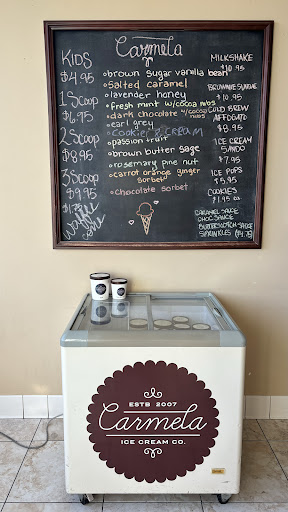 Carmela
KIDS
$4.95
1 Scoop
$6.95
2 Scoop
$8.95
3 Scoop
$9.95
$1.75
Waffle
Cone
• brown sugar vanilla bean
• Salted caramel
• lavender honey
• Fresh mint w/cocoa nibs
• dark chocolate w/cocoa nibs
• earl grey
• COOKIES & CREAM
• passion fruit
• brown butter sage
• rosemary pine nut
• carrot orange ginger
sorbet
• chocolate sorbet
MILKSHAKE
$10.95
BROWNIE SUNDAE
$10.95
COLD BREW
AFFOGATO
$8.95
ICE CREAM
SANDO
$7.95
ICE POPS
$5.95
COOKIES
$1.95 ea
CARAMEL SAUCE
CHOC SAUCE
BUTTERSCOTCH SAUCE
SPRINKLES
ESTB 2007
Carmela
ICE CREAM CO.